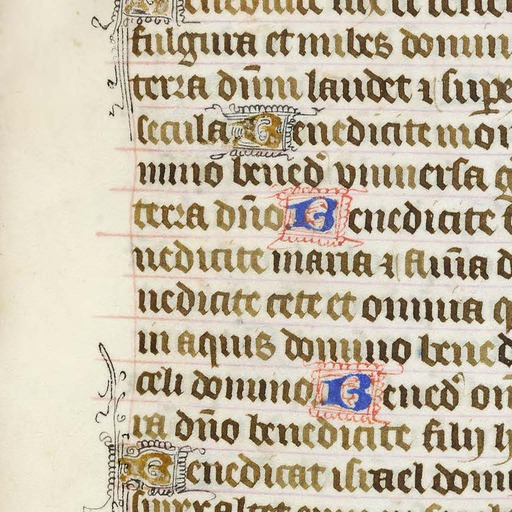 Benedicite lux et tene
fulgura et nubes domin
terra dn̄m laudet ⁊ supe
secula Benedicite mon
mino bened̉ vniuersa g
terra dn̄o Benedicite f
nedicite maria ⁊ flūīa d
nedicite cete et omnia q
in aquis domino bened
celi domino Bened̉ om
ra dn̄o benedicite filij h
Benedicat israel domi